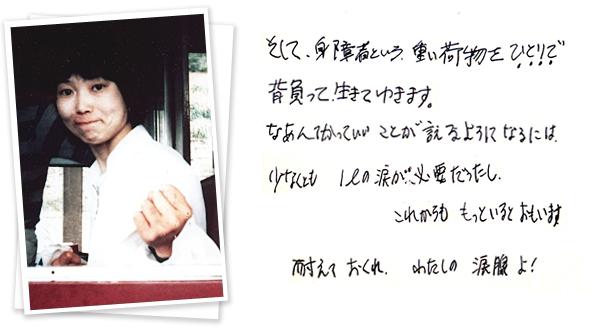 そして、身障者という、重い荷物を ひとりで
背負って、生きてゆきます。
なあんてかっていいことが言えるようになるには、
少なくとも 1ℓの涙が、必要だったし、
これからも もっといるとおもいます
耐えておくれ、わたしの涙腺よ!